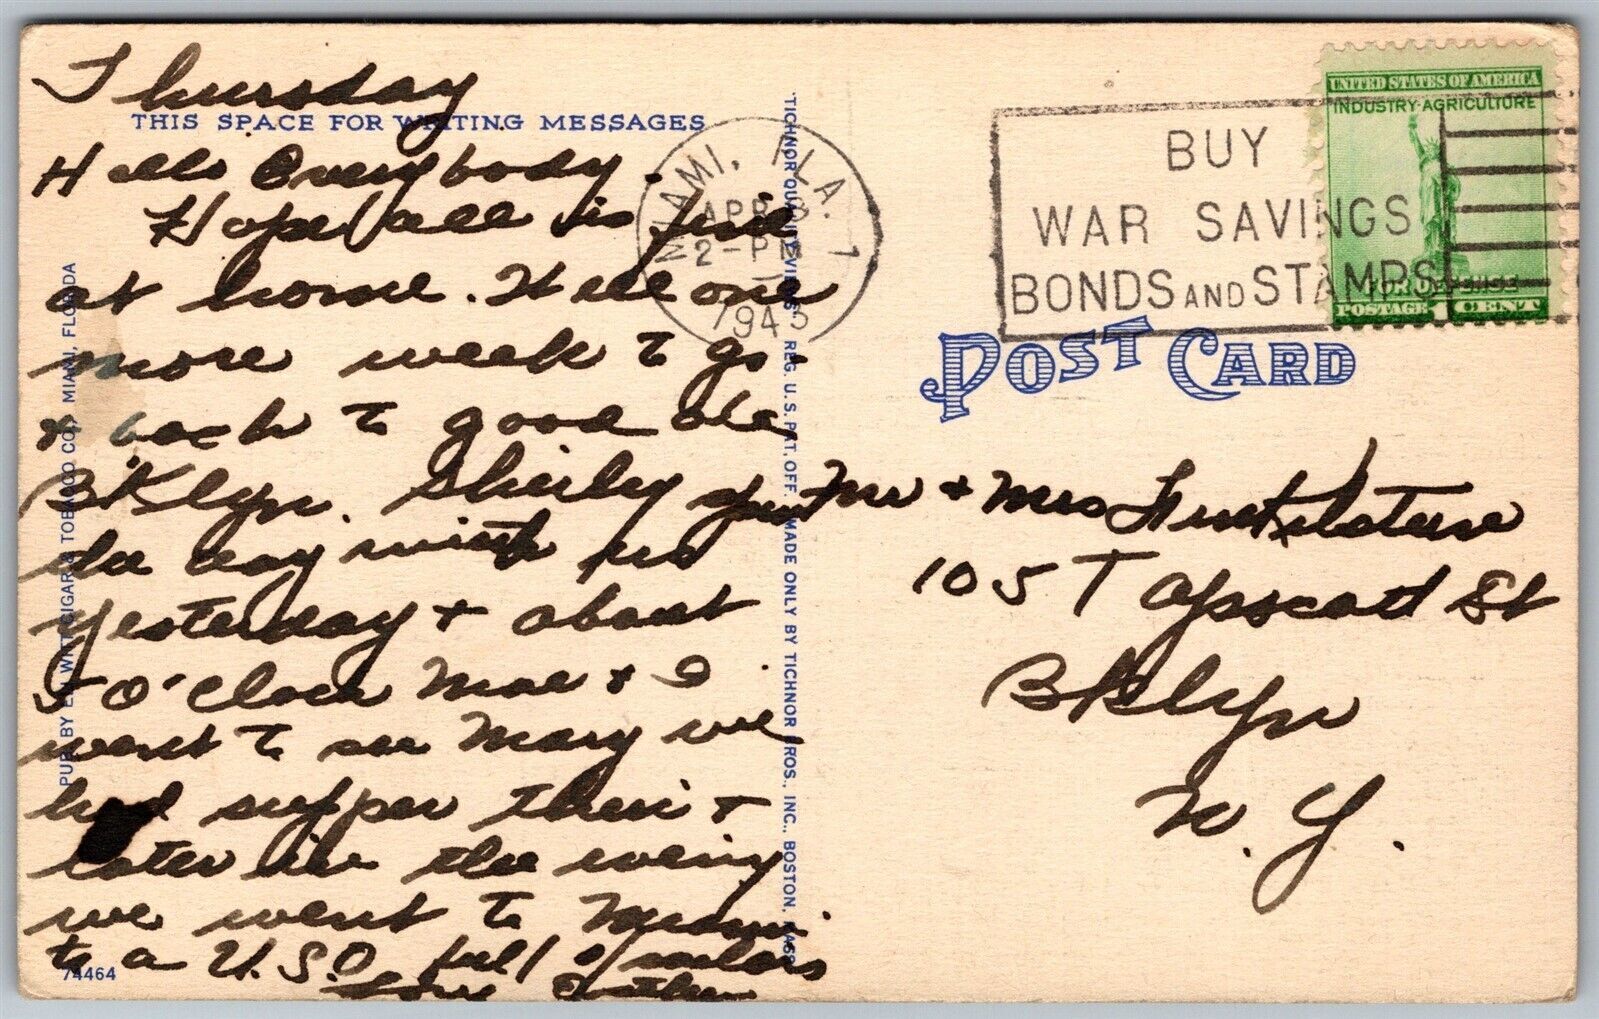 Thursday
THIS SPACE FOR WRITING MESSAGES
Hello Everybody.
Hope all is fine
at home. Have one
more week to go.
+ back to good ole
Bklyn. Shirley spent
the day with us
yesterday + about
5 O'Clock Mae + I
went to see Mary we
had supper there +
later in the evening
we went to Miami
to a U.S.O full of sailors
Love Esther
74464
PUB. BY ELI WITT CIGAR & TOBACCO CO., MIAMI, FLORIDA
"TICHNOR QUALITY VIEWS" REG. U. S. PAT. OFF. MADE ONLY BY TICHNOR BROS., INC., BOSTON, MASS.
MIAMI, FLA. 1
APR 8
2-PM
1943
BUY
WAR SAVINGS
BONDS AND STAMPS
UNITED STATES OF AMERICA
INDUSTRY-AGRICULTURE
FOR DEFENSE
POSTAGE 1 CENT
POST CARD
Mr + Mrs
105 Tapscott St
Bklyn
N. Y.